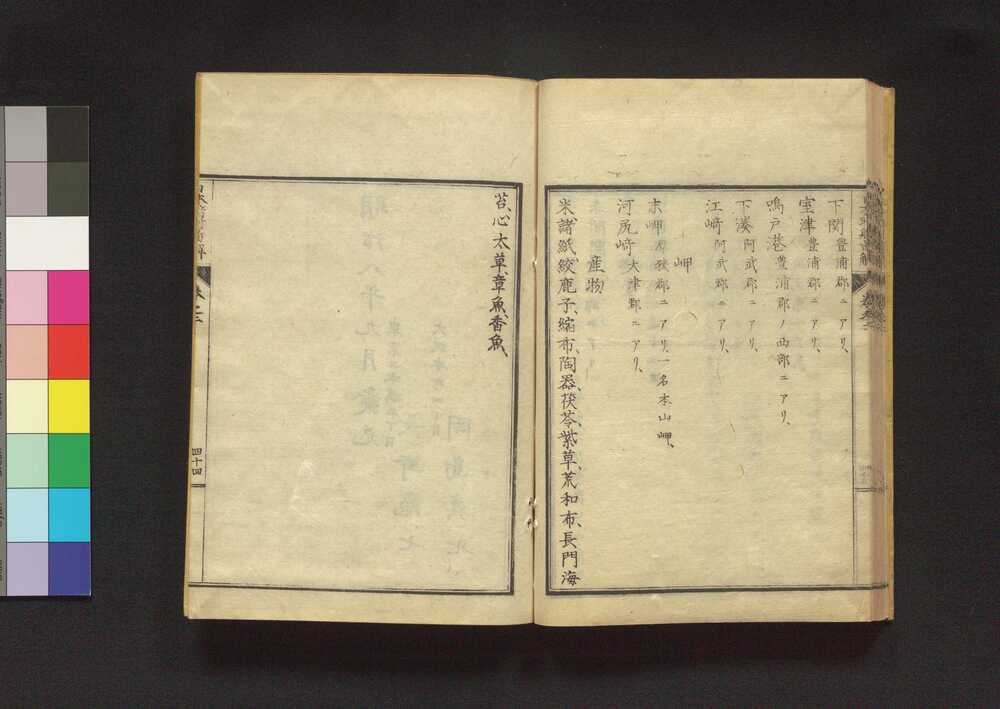 下関豊浦郡ニアリ、
室津豊浦郡ニアリ、
鳴戸港豊浦郡ノ西部ニアリ、
下湊阿武郡ニアリ、
江﨑阿武郡ニアリ、
岬
本岬厚狹郡ニアリ、一名本山岬、
河尻﨑大津郡ニアリ、
産物
米、諸紙、絞鹿子、縮布、陶器、茯苓、紫草、荒和布、長門海
苔、心太草、章魚、香魚、
四十四